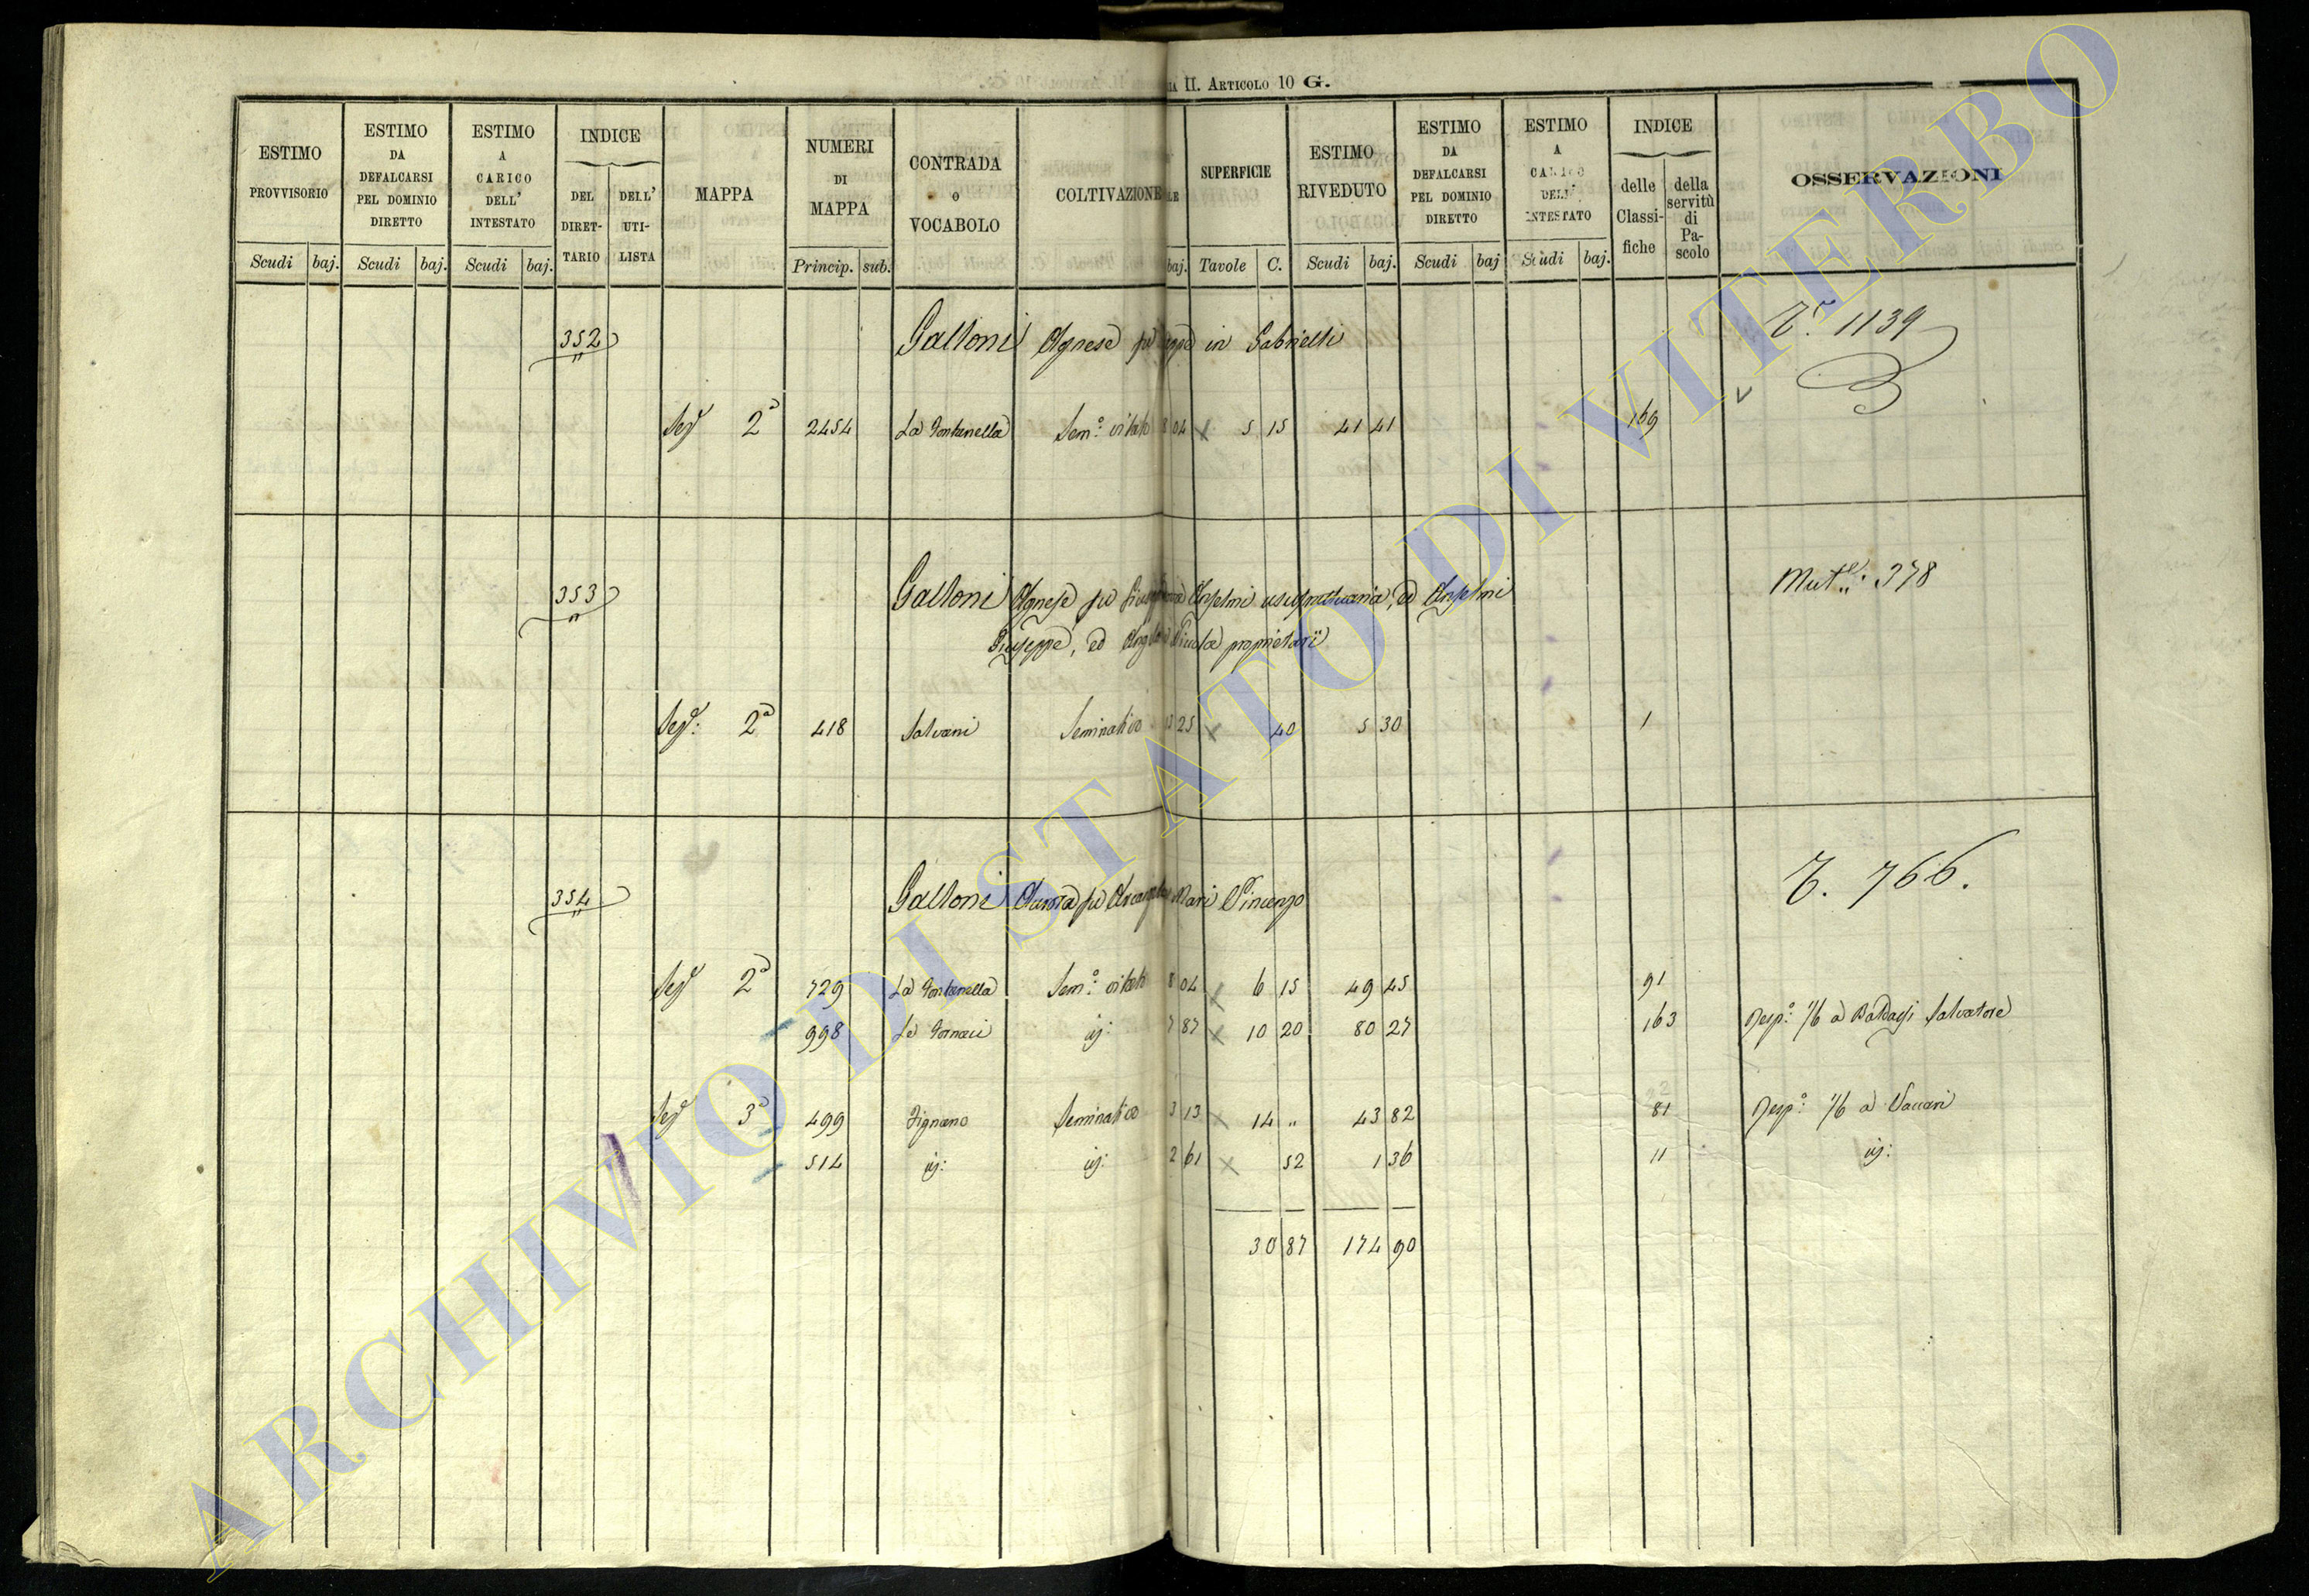 II. ARTICOLO 10 G.
ESTIMO PROVVISORIO Scudi baj.
ESTIMO DA DEFALCARSI PEL DOMINIO DIRETTO Scudi baj.
ESTIMO A CARICO DELL' INTESTATO Scudi baj.
INDICE DEL DIRET-TARIO DELL' UTI-LISTA
MAPPA
NUMERI DI MAPPA Princip. sub.
CONTRADA O VOCABOLO
COLTIVAZIONE
baj.
SUPERFICIE Tavole C.
ESTIMO RIVEDUTO Scudi baj.
ESTIMO DA DEFALCARSI PEL DOMINIO DIRETTO Scudi baj
ESTIMO A CARICO DELL' INTESTATO Scudi baj.
INDICE delle Classi-fiche della servitù di Pa-scolo
OSSERVAZIONI
352 Galloni Agnese fu in Gabrielli 1139
2a 2454 La Fontanella Sem.o vitato 8 04 5 15 41 41 169
353 Galloni Agnese fu Anselmi usufruttuaria, ed Anselmi 378
Giuseppe, ed proprietarii
2a 418 Salvani Seminativo 25 40 5 30 1
354 Galloni fu Mari Vincenzo 766.
2a 729 La Fontanella Sem.o vitato 8 04 6 15 49 45 91
998 Le Fornaci id: 7 87 10 20 80 27 163 1/6 a Salvatore
3a 499 Tignano Seminativo 3 13 14 " 43 82 81 1/6 a Vaccari
514 id: id: 2 61 52 1 36 11 id:
30 87 174 90
ARCHIVIO DI STATO DI VITERBO